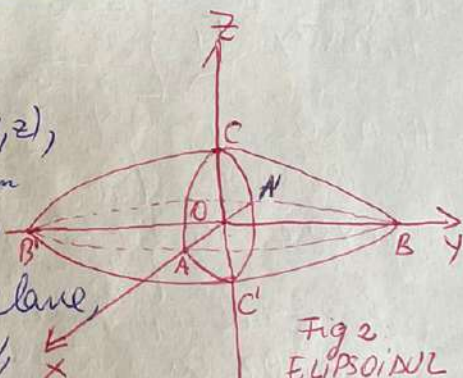 Z
, z),
C
A'
O
B'
A
B
Y
lane,
C'
X
Fig 2
ELIPSOIDUL